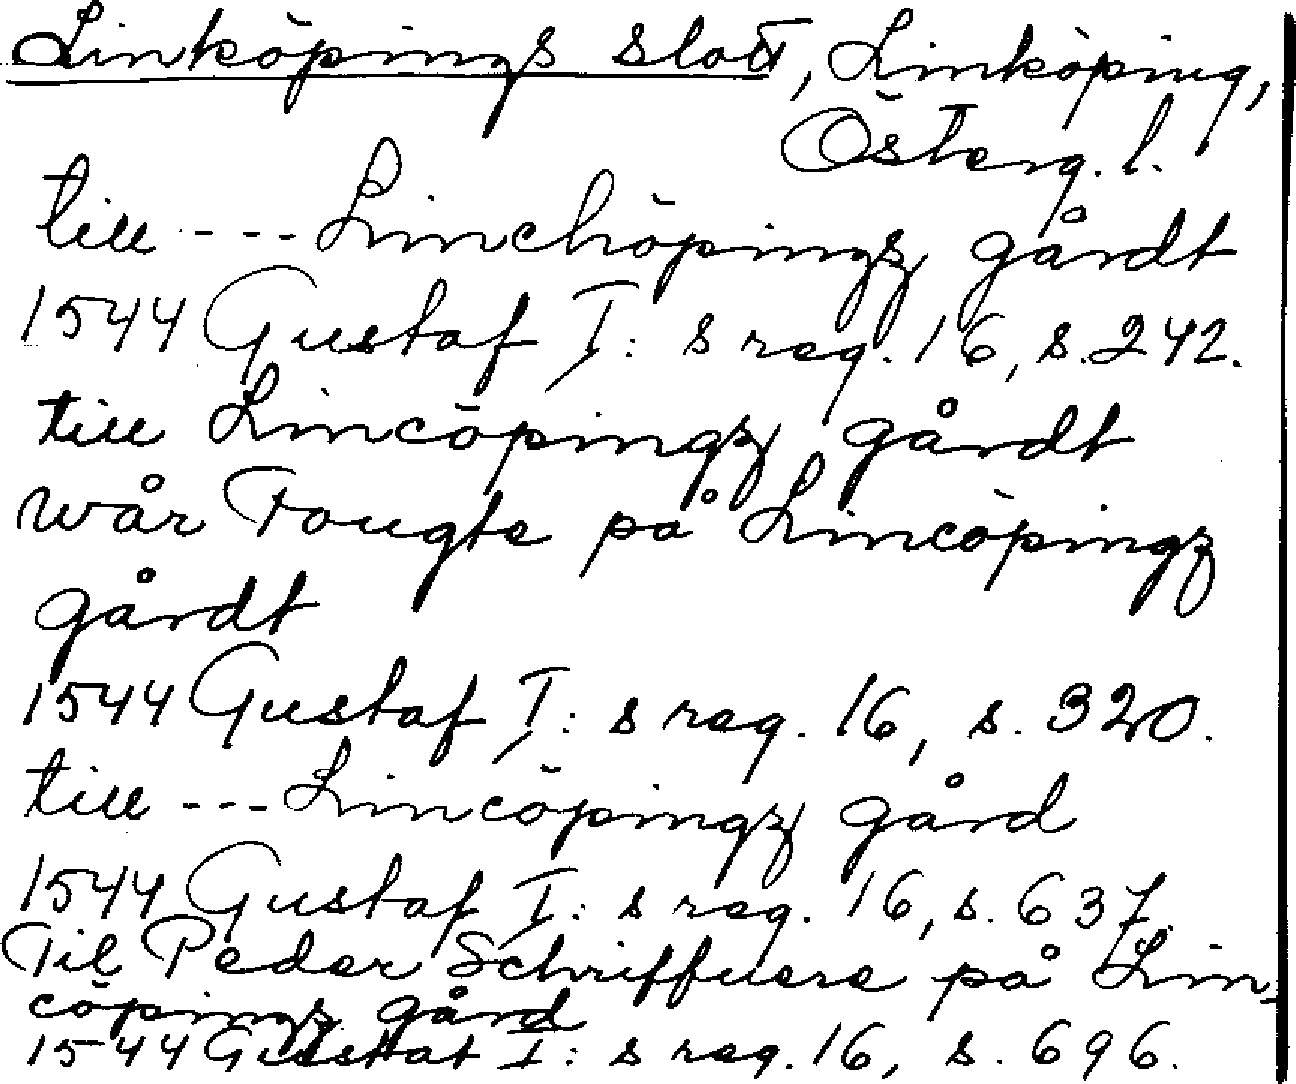 Linköpings slott, Linköping,
Österg. l.
till --- Linchöpingz gårdt
1544 Gustaf I: s reg. 16, s. 242.
till Lincöpingz gårdt
wår Fougte på Lincöpingz
gårdt
1544 Gustaf I: s reg. 16, s. 320.
till --- Lincöpingz gård
1544 Gustaf I: s reg. 16, s. 637.
Til Peder Schriffuere på Lin-
cöpingz gård
1544 Gustaf I: s reg. 16, s. 696.